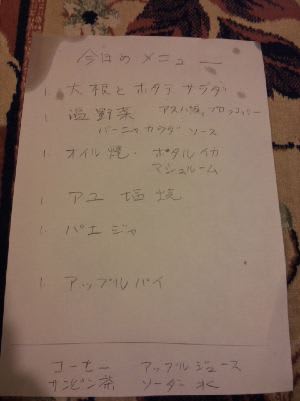 今日のメニュー
1. 大根とホタテサラダ
1. 温野菜 アスパラ, ブロッコリー
バーニャカウダソース
1. オイル焼・ホタルイカ
マシュルーム
1. アユ 塩焼
1. パエジャ
1. アップルパイ
コーヒー アップルジュース
サンピン茶 ソーダー 水